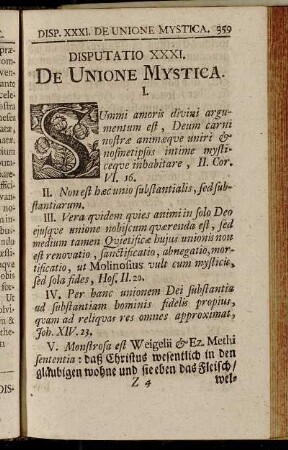 DISP. XXXI. DE UNIONE MYSTICA. 359
DISPUTATIO XXXI.
DE UNIONE MYSTICA.
I.
SUmmi amoris divini argu-
mentum est, Deum carni
nostræ animæque uniri &
nosmetipsos intime mysti-
ceque inhabitare, II. Cor.
VI. 16.
II. Non est hæc unio substantialis, sed sub-
stantiarum.
III. Vera quidem quies animi in solo Deo
ejusque unione nobiscum quærenda est, sed
medium tamen Quietificæ hujus unionis non
est renovatio, sanctificatio, abnegatio, mor-
tificatio, ut Molinosius vult cum mysticis,
sed sola fides, Hos. II. 20.
IV. Per hanc unionem Dei substantia
ad substantiam hominis fidelis propius,
quam ad reliquas res omnes approximat,
Joh. XIV. 23.
V. Monstrosa est Weigelii & Ez. Methi
sententia: daß Christus wesentlich in den
gläubigen wohne und sie eben das Fleisch/
Z 4 wel-